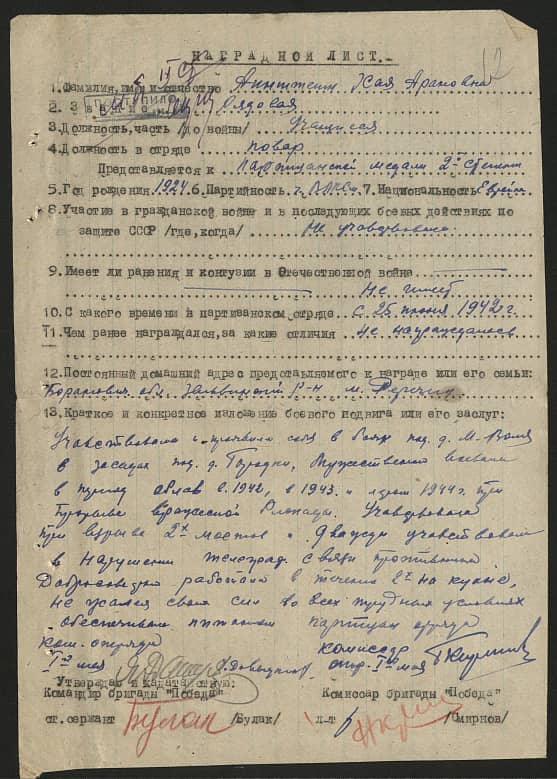 НАГРАДНОЙ ЛИСТ.
1. Фамилия, имя и отчество Хая Ароновна
2. Звание Рядовая
3. Должность, часть /до войны/ Учащиеся
4. Должность в отряде повар
Представляется к Партизанской медали 2й степени
5. Год рождения 1924 6. Партийность 7. Национальность Еврейк
8. Участие в гражданской войне и в последующих боевых действиях по
защите СССР /где, когда/ Не участвовала
9. Имеет ли ранения и контузии в Отечественной войне
Не имеет
10. С какого времени в партизанском отряде с 25 июня 1942 г.
11. Чем ранее награждался, за какие отличия не награждалась
12. Постоянный домашний адрес представляемого к награде или его семьи:
Баранович. обл. р-н м.
13. Краткое и конкретное изложение боевого подвига или его заслуг:
Участвовала и проявила себя в боях под д. М. Воля
в засадах под д. Городки, Мужественно воевала
в период облав в 1942, в 1943 и 1944 г. при
прорыве вражеской блокады. Участвовала
при взрыве 2х мостов и дважды участвовала
в нарушении железнод. связи противника
Добросовестно работала в течении 2г на кухне,
не жалея своих сил во всех трудных условиях
обеспечивала питанием партизан отряда
Ком. отряда комиссар
1го мая /Давыдов/ отр. 1го мая
Утверждаю и ходатайствую:
Командир бригады "Победа" Комиссар бригады "Победа"
ст. сержант Булак /Булак/ л-т /Смирнов/